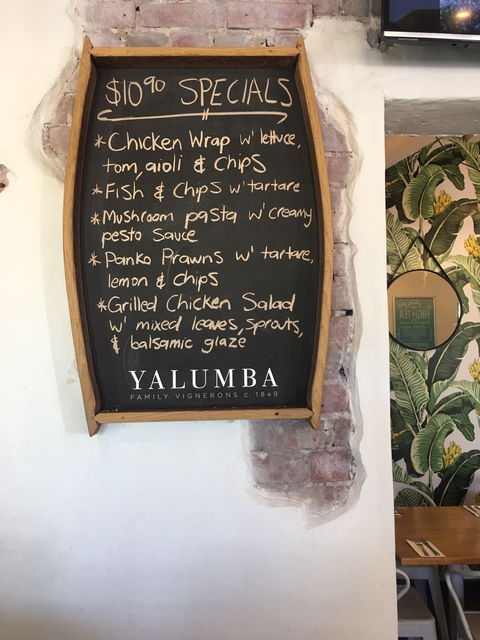 $10⁹⁰ SPECIALS
* Chicken Wrap w' lettuce,
tom, aioli & Chips
* Fish & Chips w' tartare
* Mushroom pasta w' creamy
pesto Sauce
* Panko Prawns w' tartare,
lemon & chips
* Grilled Chicken Salad
w' mixed leaves, sprouts,
& balsamic glaze
YALUMBA
FAMILY VIGNERONS c. 1849
HIGH TEA